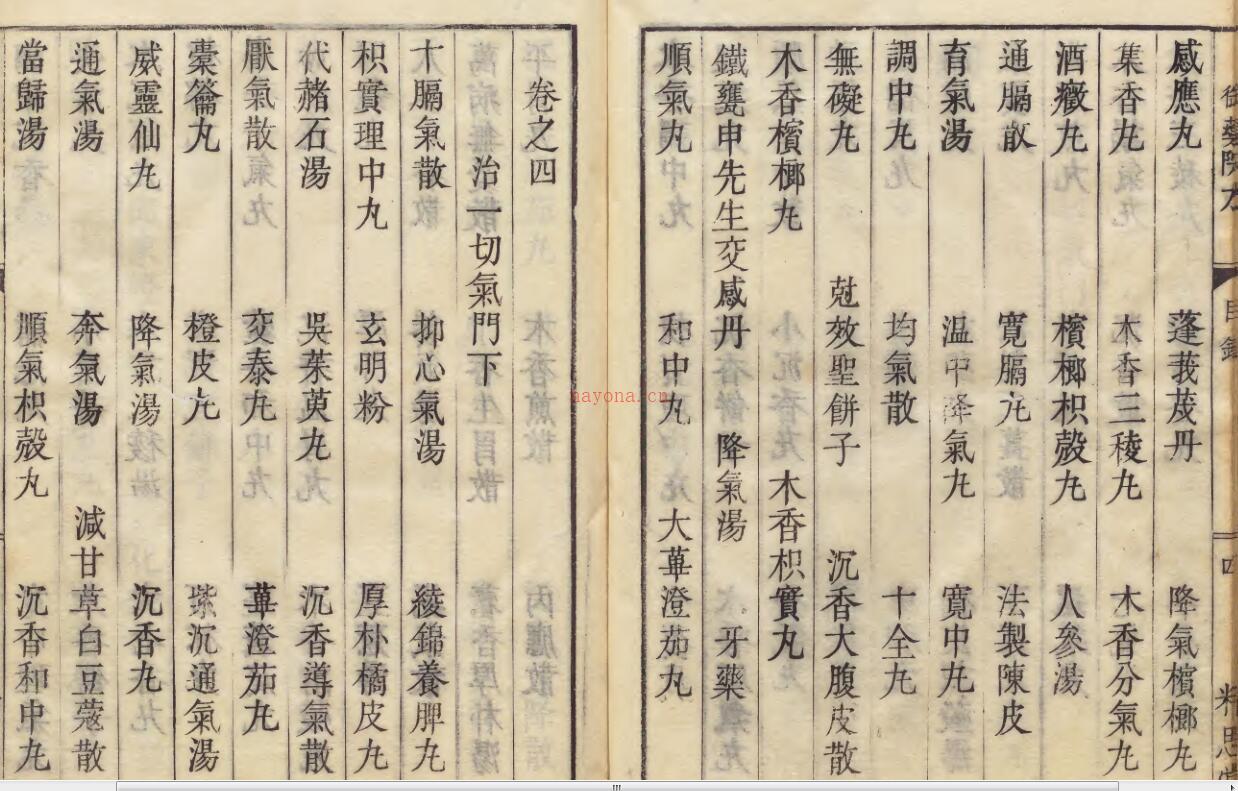 御藥院方
目錄
四
精思堂
感應丸 蓬莪茂丹 降氣檳榔丸
集香丸 木香三稜丸 木香分氣丸
酒癥丸 檳榔枳殼丸 人參湯
通膈散 寬膈丸 法製陳皮
育氣湯 温中降氣丸 寬中丸
調中丸 均氣散 十全丸
無礙丸 尅效聖餅子 沉香大腹皮散
木香檳榔丸 木香枳實丸
鐵甕申先生交感丹 降氣湯 牙藥
順氣丸 和中丸 大蓽澄茄丸
卷之四
治一切氣門下
十膈氣散 抑心氣湯 綾錦養脾丸
枳實理中丸 玄明粉 厚朴橘皮丸
代赭石湯 吳茱萸丸 沉香導氣散
厭氣散 交泰丸 蓽澄茄丸
橐籥丸 橙皮丸 紫沉通氣湯
威靈仙丸 降氣湯 沉香丸
通氣湯 奔氣湯 減甘草白豆蔻散
當歸湯 順氣枳殼丸 沉香和中丸
nayona.cn